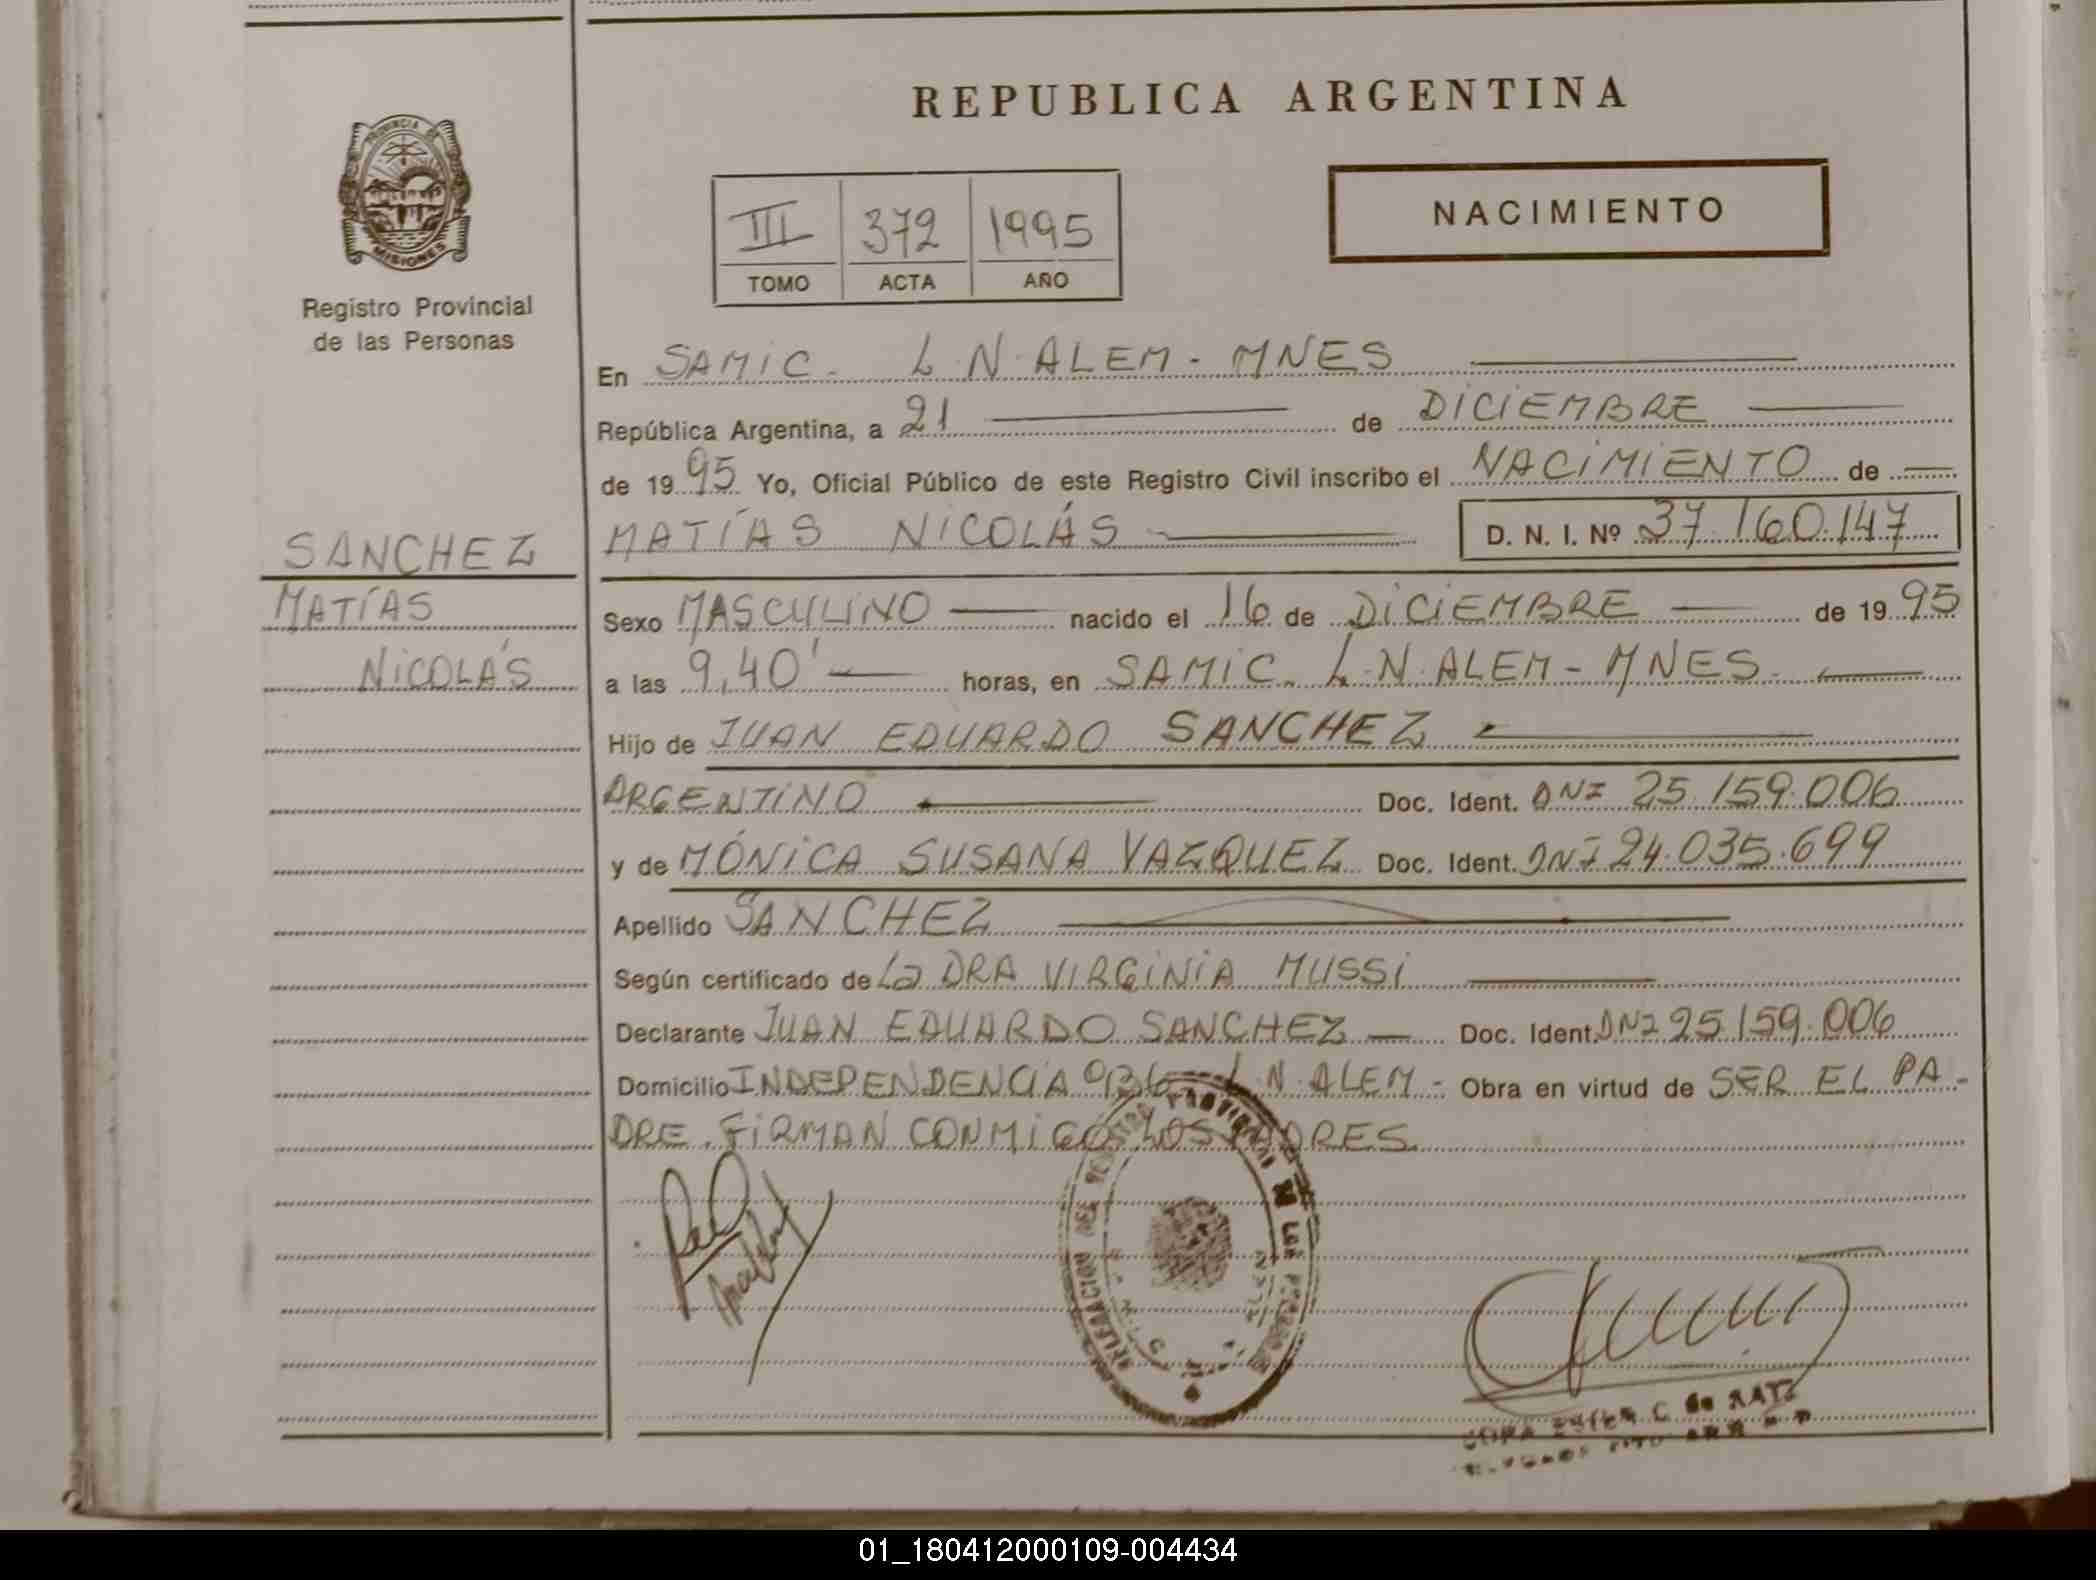 REPUBLICA ARGENTINA
PROVINCIA DE
MISIONES
Registro Provincial
de las Personas
III 372 1995
TOMO ACTA AÑO
NACIMIENTO
En SAMIC. L.N.ALEM - MNES
República Argentina, a 21 de DICIEMBRE
de 1995 Yo, Oficial Público de este Registro Civil inscribo el NACIMIENTO de
MATÍAS NICOLÁS D. N. I. Nº 37.160.147
SANCHEZ
MATÍAS
NICOLÁS
Sexo MASCULINO nacido el 16 de DICIEMBRE de 1995
a las 9,40' horas, en SAMIC. L.N.ALEM - MNES
Hijo de JUAN EDUARDO SANCHEZ
ARGENTINO Doc. Ident. DNI 25.159.006
y de MÓNICA SUSANA VAZQUEZ Doc. Ident. DNI 24.035.699
Apellido SANCHEZ
Según certificado de La DRA VIRGINIA MUSSI
Declarante JUAN EDUARDO SANCHEZ Doc. Ident. DNI 25.159.006
Domicilio INDEPENDENCIA L.N.ALEM - Obra en virtud de SER EL PA-
DRE. FIRMAN CONMIGO LOS PADRES.
DELEGACION DEL REGISTRO PROVINCIAL DE LAS PERSONAS
C. de RATZ
01_180412000109-004434